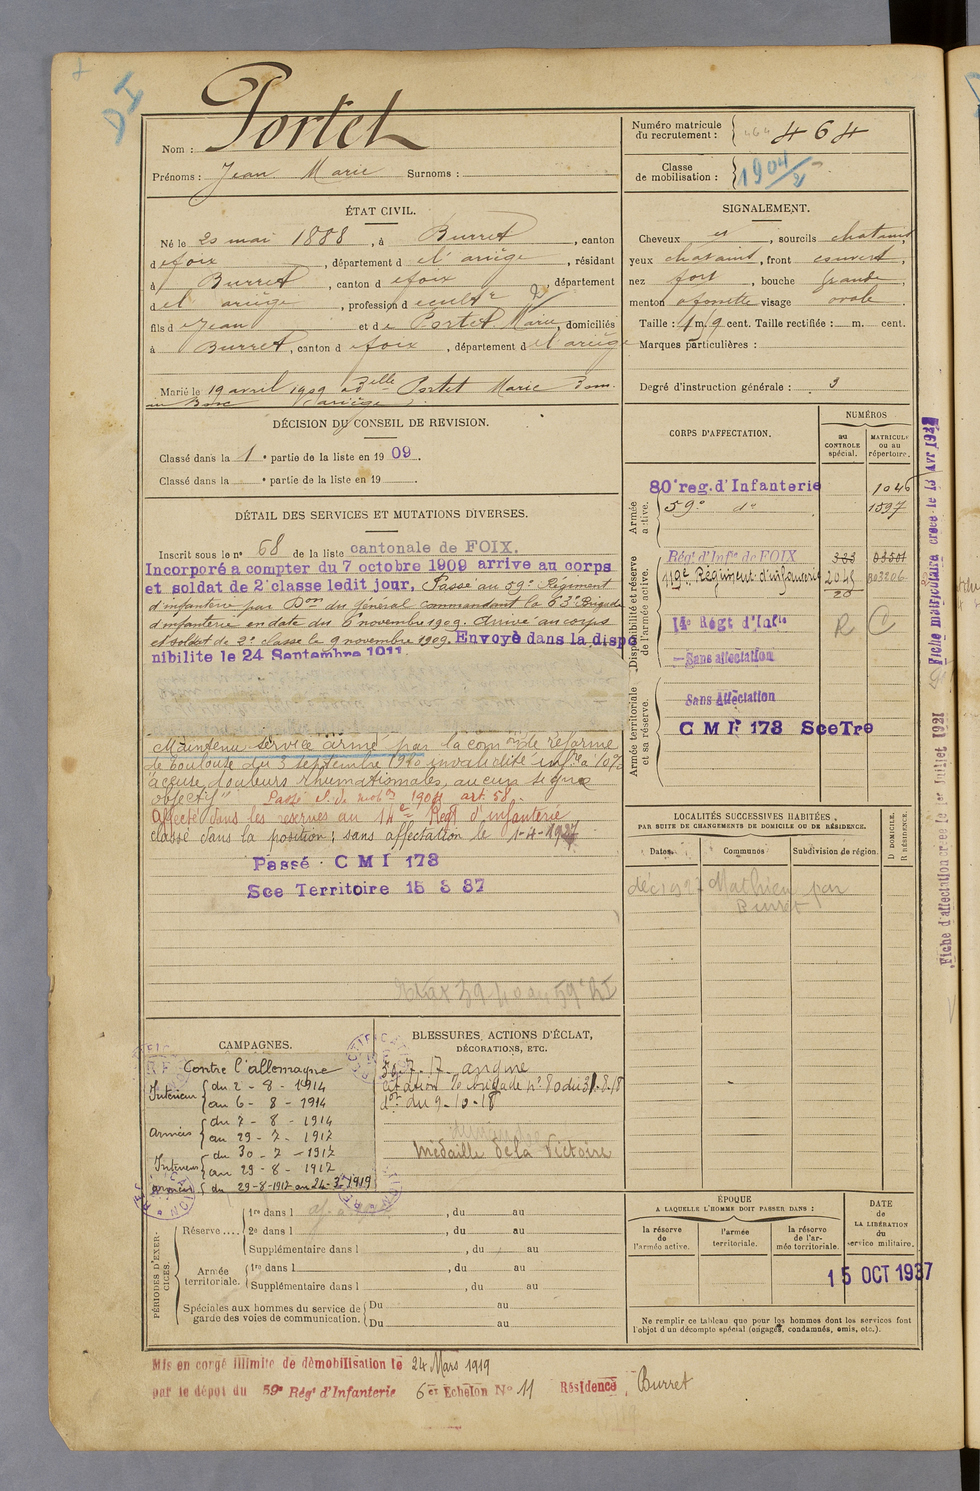 DI
Nom : Portet
Prénoms : Jean Marie Surnoms :
Numéro matricule du recrutement : 464
Classe de mobilisation : 1904/2
ÉTAT CIVIL.
Né le 20 mai 1888, à Burret, canton
de foix, département de l'ariège, résidant
à Burret, canton de foix, département
de l'ariège, profession de cultr
fils de Jean et de Portet Marie, domiciliés
à Burret, canton de foix, département de l'ariège
Marié le 19 avril 1909 à Delle Portet Marie Dom.
au Bosc (ariège).
SIGNALEMENT.
Cheveux et, sourcils chatains
yeux chatains, front couvert,
nez fort, bouche grande,
menton a fossette visage ovale.
Taille : 1 m. cent. Taille rectifiée : m. cent.
Marques particulières :
Degré d'instruction générale : 3
DÉCISION DU CONSEIL DE REVISION.
Classé dans la 1e partie de la liste en 1909.
Classé dans la e partie de la liste en 19 .
DÉTAIL DES SERVICES ET MUTATIONS DIVERSES.
Inscrit sous le n° 68 de la liste cantonale de FOIX.
Incorporé a compter du 7 octobre 1909 arrive au corps
et soldat de 2e classe ledit jour, Passé au 59e Régiment
d'infanterie par Don du général commandant la 63e Brigade
d'infanterie en date du 6 novembre 1909. Arrivé au corps
et soldat de 2e classe le 9 novembre 1909. Envoyé dans la dispo
nibilite le 24 Septembre 1911.
Maintenu service armé par la comon de réforme
de Toulouse du 3 septembre 1920 invalidité infre à 10%
accuse douleurs rhumatismales, aucun signe
objectif" Passé cl. de mobon 1904 art. 58.
Affecté dans les reserves au 14e Regt d'infanterie
classé dans la position : sans affectation le 1-4-1927
Passé CMI 173
Sce Territoire 15 3 37
CORPS D'AFFECTATION.
NUMÉROS
au CONTROLE spécial.
MATRICULE ou au répertoire.
Armée active.
80e reg. d'Infanterie 1046
59e de 1597
Disponibilité et réserve de l'armée active.
Régt d'Infie de FOIX 03501
Régiment d'infanterie
14e Régt d'Infie R C
Sans affectation
Armée territoriale et sa réserve.
Sans Affectation
CMI 173 SceTre
LOCALITÉS SUCCESSIVES HABITÉES,
PAR SUITE DE CHANGEMENTS DE DOMICILE OU DE RÉSIDENCE.
Dates. Communes Subdivision de région. D DOMICILE. R RÉSIDENCE.
déc 1927 Mathieu par
Burret
CAMPAGNES.
Contre l'allemagne
Intérieur du 2 - 8 - 1914
au 6 - 8 - 1914
Armées du 7 - 8 - 1914
au 29 - 7 - 1917
Intérieur du 30 - 7 - 1917
au 29 - 8 - 1917
Armées du 29-8-1917 au 24-3-1919
BLESSURES, ACTIONS D'ÉCLAT,
DÉCORATIONS, ETC.
30.7.17 angine
Citation 7e Brigade n° 80 du 31.8.18
du 9-10-18
Médaille de la Victoire
PÉRIODES D'EXERCICES.
Réserve.... 1re dans l , du au
2e dans l , du au
Supplémentaire dans l , du au
Armée territoriale. 1re dans l , du au
Supplémentaire dans l , du au
Spéciales aux hommes du service de garde des voies de communication. Du au
Du au
ÉPOQUE
A LAQUELLE L'HOMME DOIT PASSER DANS :
la réserve de l'armée active.
l'armée territoriale.
la réserve de l'armée territoriale.
DATE de LA LIBÉRATION du service militaire.
15 OCT 1937
Ne remplir ce tableau que pour les hommes dont les services font
l'objet d'un décompte spécial (engagés, condamnés, omis, etc.).
Mis en congé illimité de démobilisation le 24 Mars 1919
par le dépôt du 59e Régt d'Infanterie 6e Echelon N° 11 Résidence, Burret
Fiche d'affectation créée le 1er Juillet 1921
Fiche matriculaire créée le